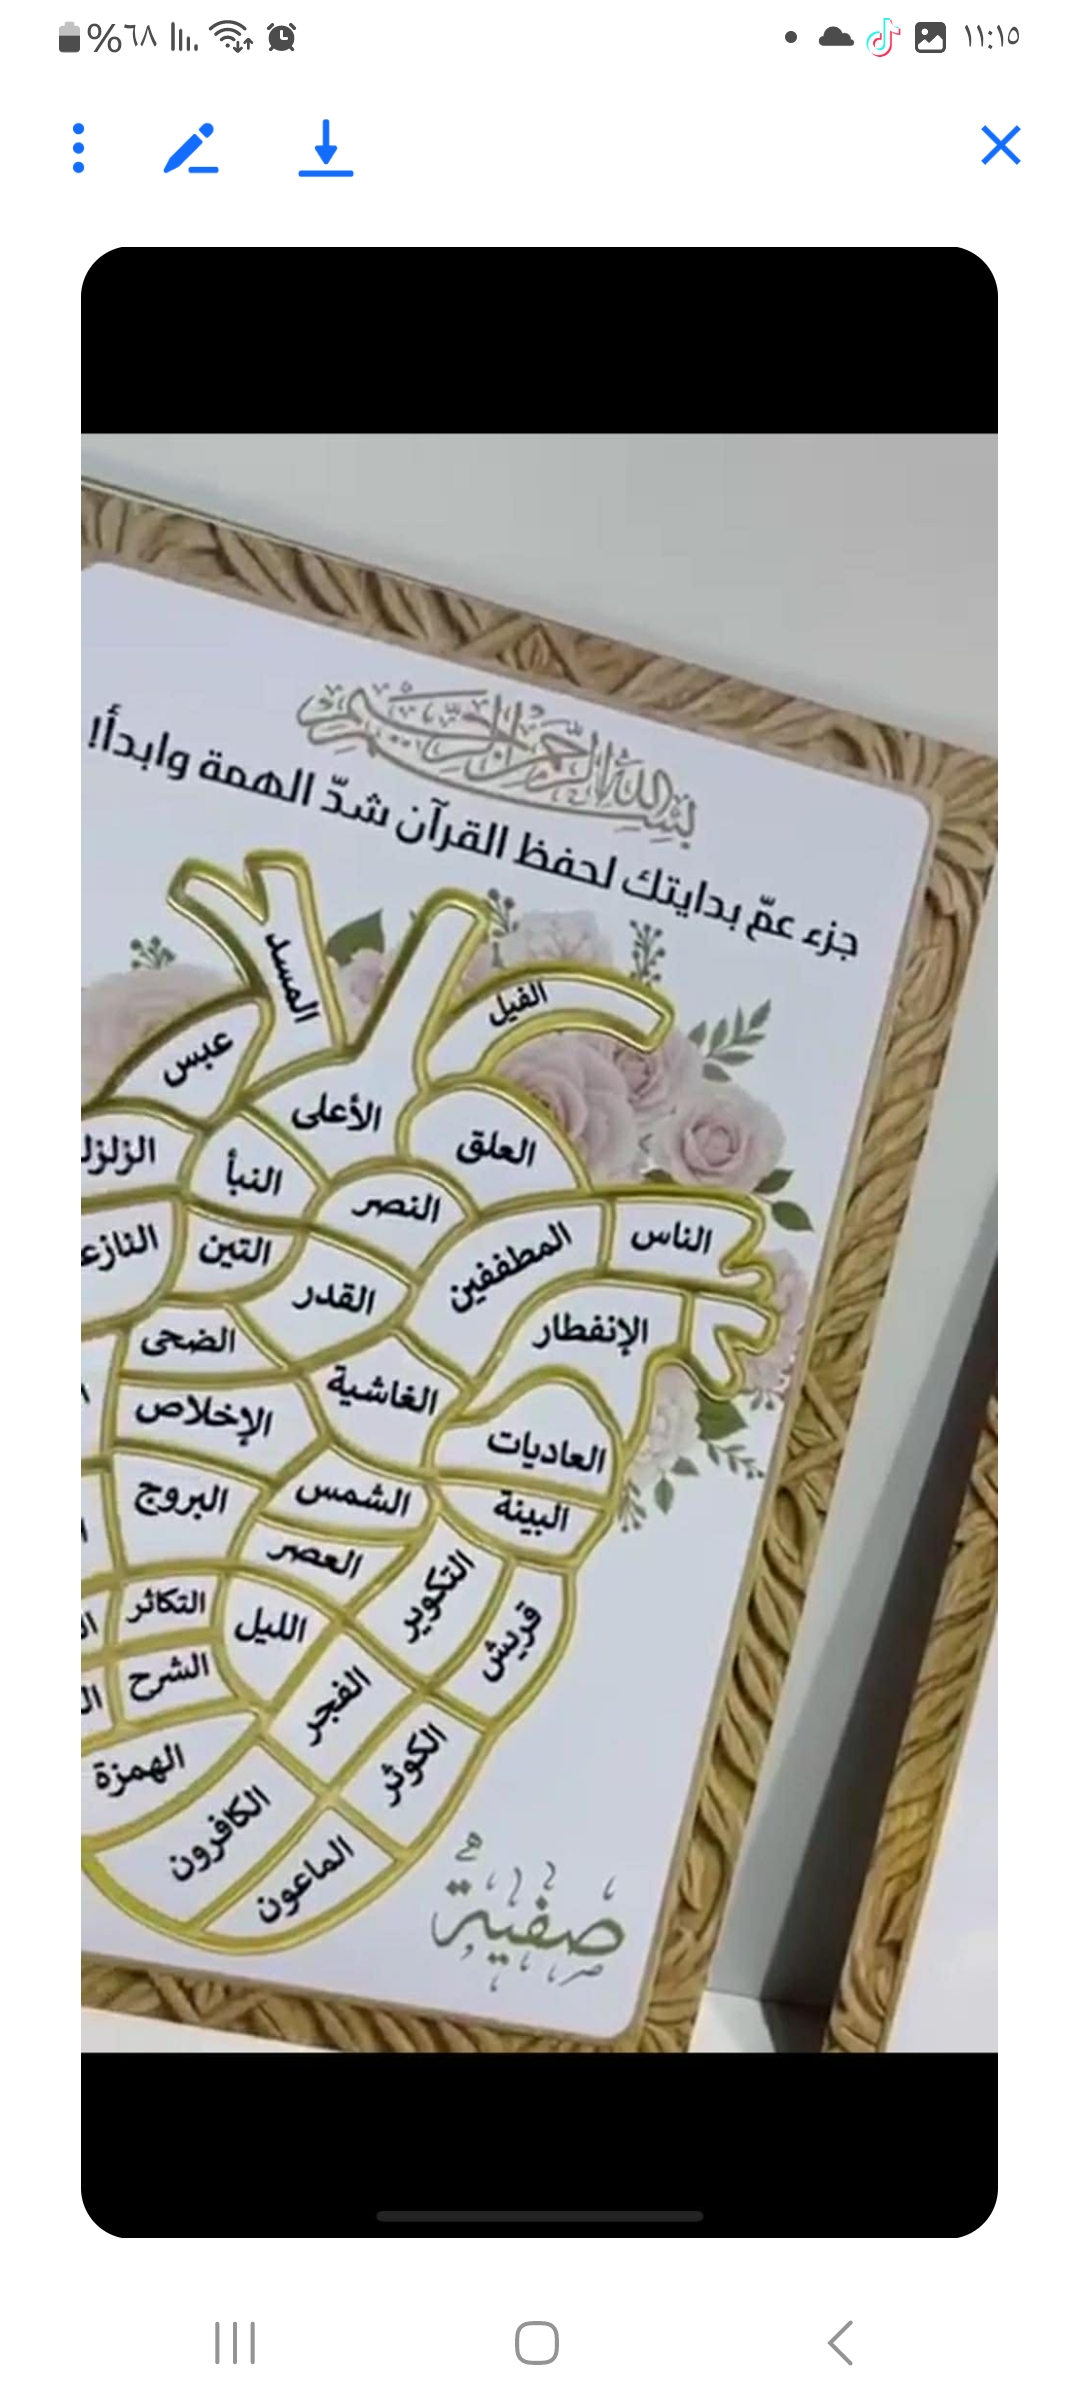 ١١:١٥
%٦٨
بسم الله الرحمن الرحيم
جزء عمّ بدايتك لحفظ القرآن شدّ الهمة وابدأ!
المسد
الفيل
عبس
الأعلى
العلق
النبأ
النصر
الناس
المطففين
التين
القدر
الإنفطار
الضحى
الغاشية
الإخلاص
العاديات
البروج
الشمس
البينة
العصر
التكوير
التكاثر
الليل
قريش
الشرح
الفجر
الهمزة
الكوثر
الكافرون
الماعون
صفية